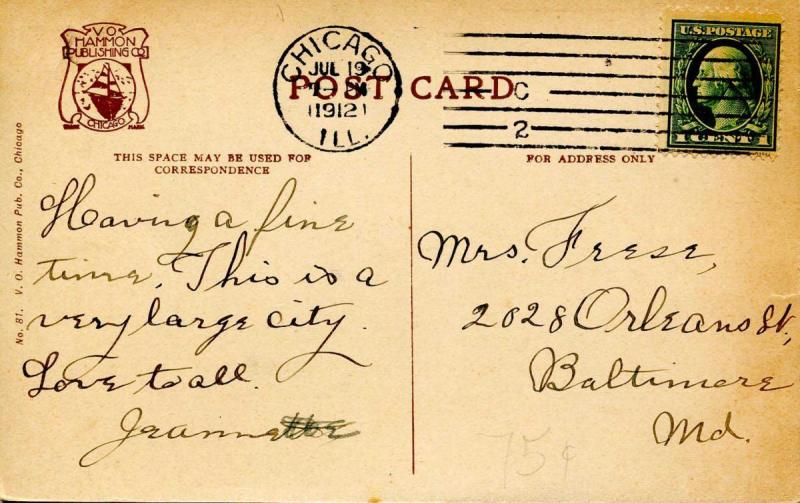 V.O.
HAMMON
PUBLISHING CO
CHICAGO
TRADE MARK
No. 81. V. O. Hammon Pub. Co., Chicago
CHICAGO
JUL 19
1912
ILL.
POST CARD
C
2
U.S. POSTAGE
THIS SPACE MAY BE USED FOR
CORRESPONDENCE
FOR ADDRESS ONLY
Having a fine
time. This is a
very large city.
Love to all.
Jeannette
Mrs. Frese,
2028 Orleans St,
Baltimore
Md.
75¢